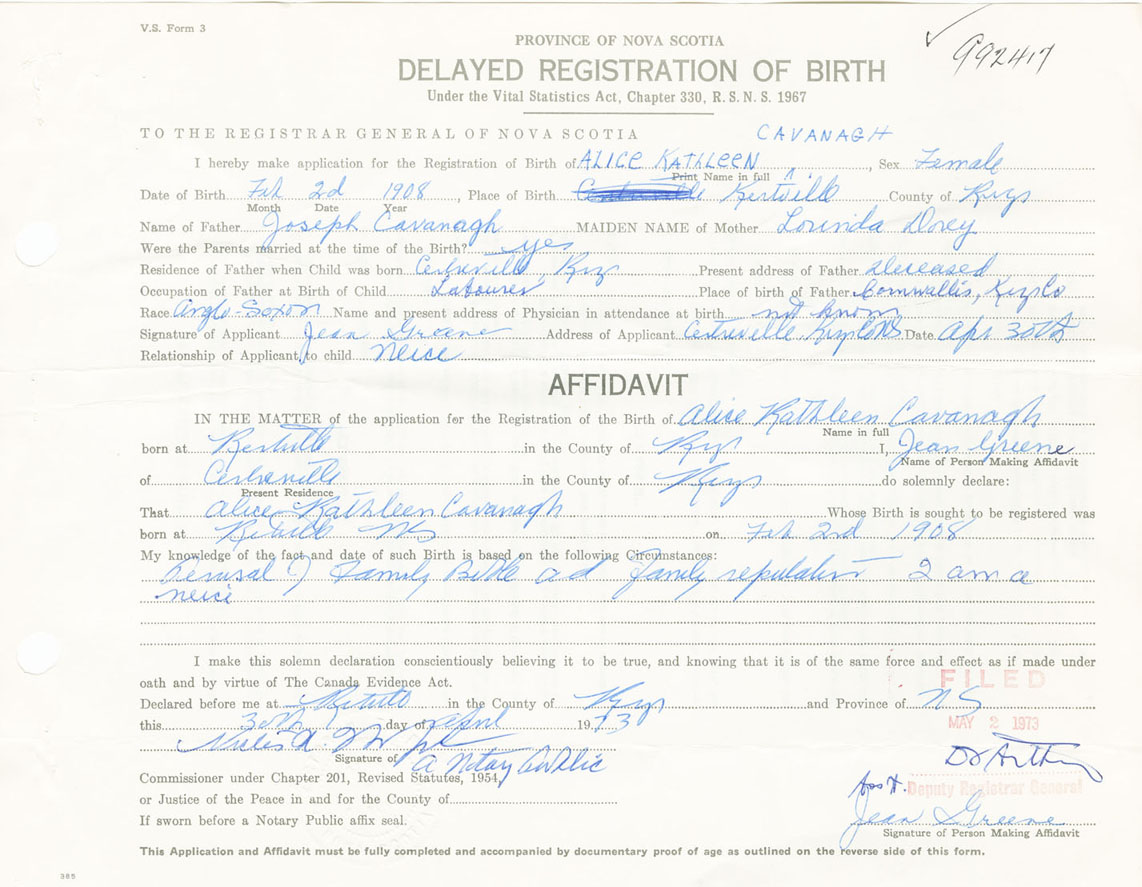 V.S. Form 3
992417
PROVINCE OF NOVA SCOTIA
DELAYED REGISTRATION OF BIRTH
Under the Vital Statistics Act, Chapter 330, R. S. N. S. 1967
TO THE REGISTRAR GENERAL OF NOVA SCOTIA
CAVANAGH
I hereby make application for the Registration of Birth of ALICE KATHLEEN, Sex Female
Print Name in full
Date of Birth Feb 2d 1908, Place of Birth Kentville County of Kings
Month Date Year
Name of Father Joseph Cavanagh MAIDEN NAME of Mother Lourinda Dorey
Were the Parents married at the time of the Birth? yes
Residence of Father when Child was born Centreville, Kings Present address of Father Deceased
Occupation of Father at Birth of Child Labourer Place of birth of Father Cornwallis, Kings Co
Race Anglo-Saxon Name and present address of Physician in attendance at birth not known
Signature of Applicant Jean Greene Address of Applicant Centreville Kings Co NS Date Apr 30th
Relationship of Applicant to child Neice
AFFIDAVIT
IN THE MATTER of the application for the Registration of the Birth of Alice Kathleen Cavanagh
Name in full
born at Kentville in the County of Kings I, Jean Greene
Name of Person Making Affidavit
of Centreville in the County of Kings do solemnly declare:
Present Residence
That Alice Kathleen Cavanagh Whose Birth is sought to be registered was
born at Kentville NS on Feb 2nd 1908
My knowledge of the fact and date of such Birth is based on the following Circumstances:
Perusal of Family Bible and family reputation I am a
neice
I make this solemn declaration conscientiously believing it to be true, and knowing that it is of the same force and effect as if made under
oath and by virtue of The Canada Evidence Act.
FILED
Declared before me at Kentville in the County of Kings and Province of NS
this 30th day of April 1973
MAY 2 1973
Signature of a Notary Public
Commissioner under Chapter 201, Revised Statutes, 1954,
Ass't. Deputy Registrar General
or Justice of the Peace in and for the County of
Jean Greene
If sworn before a Notary Public affix seal.
Signature of Person Making Affidavit
This Application and Affidavit must be fully completed and accompanied by documentary proof of age as outlined on the reverse side of this form.
385